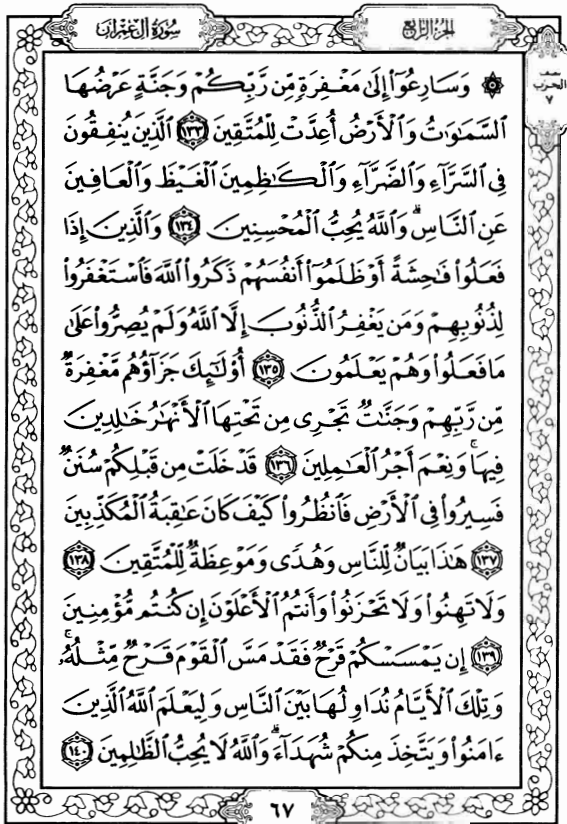 سُورَةُ آلِ عِمْرَانَ
الجُزءُ الرَّابِعُ
نصف
الحزب
٧
۞ وَسَارِعُوٓا۟ إِلَىٰ مَغْفِرَةٍ مِّن رَّبِّكُمْ وَجَنَّةٍ عَرْضُهَا
السَّمَٰوَٰتُ وَالْأَرْضُ أُعِدَّتْ لِلْمُتَّقِينَ ١٣٣ الَّذِينَ يُنفِقُونَ
فِى السَّرَّآءِ وَالضَّرَّآءِ وَالْكَٰظِمِينَ الْغَيْظَ وَالْعَافِينَ
عَنِ النَّاسِ ۗ وَاللَّهُ يُحِبُّ الْمُحْسِنِينَ ١٣٤ وَالَّذِينَ إِذَا
فَعَلُوا۟ فَٰحِشَةً أَوْ ظَلَمُوٓا۟ أَنفُسَهُمْ ذَكَرُوا۟ اللَّهَ فَاسْتَغْفَرُوا۟
لِذُنُوبِهِمْ وَمَن يَغْفِرُ الذُّنُوبَ إِلَّا اللَّهُ وَلَمْ يُصِرُّوا۟ عَلَىٰ
مَا فَعَلُوا۟ وَهُمْ يَعْلَمُونَ ١٣٥ أُو۟لَٰٓئِكَ جَزَآؤُهُم مَّغْفِرَةٌ
مِّن رَّبِّهِمْ وَجَنَّٰتٌ تَجْرِى مِن تَحْتِهَا الْأَنْهَٰرُ خَٰلِدِينَ
فِيهَا ۚ وَنِعْمَ أَجْرُ الْعَٰمِلِينَ ١٣٦ قَدْ خَلَتْ مِن قَبْلِكُمْ سُنَنٌ
فَسِيرُوا۟ فِى الْأَرْضِ فَانظُرُوا۟ كَيْفَ كَانَ عَٰقِبَةُ الْمُكَذِّبِينَ
١٣٧ هَٰذَا بَيَانٌ لِّلنَّاسِ وَهُدًى وَمَوْعِظَةٌ لِّلْمُتَّقِينَ ١٣٨
وَلَا تَهِنُوا۟ وَلَا تَحْزَنُوا۟ وَأَنتُمُ الْأَعْلَوْنَ إِن كُنتُم مُّؤْمِنِينَ
١٣٩ إِن يَمْسَسْكُمْ قَرْحٌ فَقَدْ مَسَّ الْقَوْمَ قَرْحٌ مِّثْلُهُۥ ۚ
وَتِلْكَ الْأَيَّامُ نُدَاوِلُهَا بَيْنَ النَّاسِ وَلِيَعْلَمَ اللَّهُ الَّذِينَ
ءَامَنُوا۟ وَيَتَّخِذَ مِنكُمْ شُهَدَآءَ ۗ وَاللَّهُ لَا يُحِبُّ الظَّٰلِمِينَ ١٤٠
٦٧